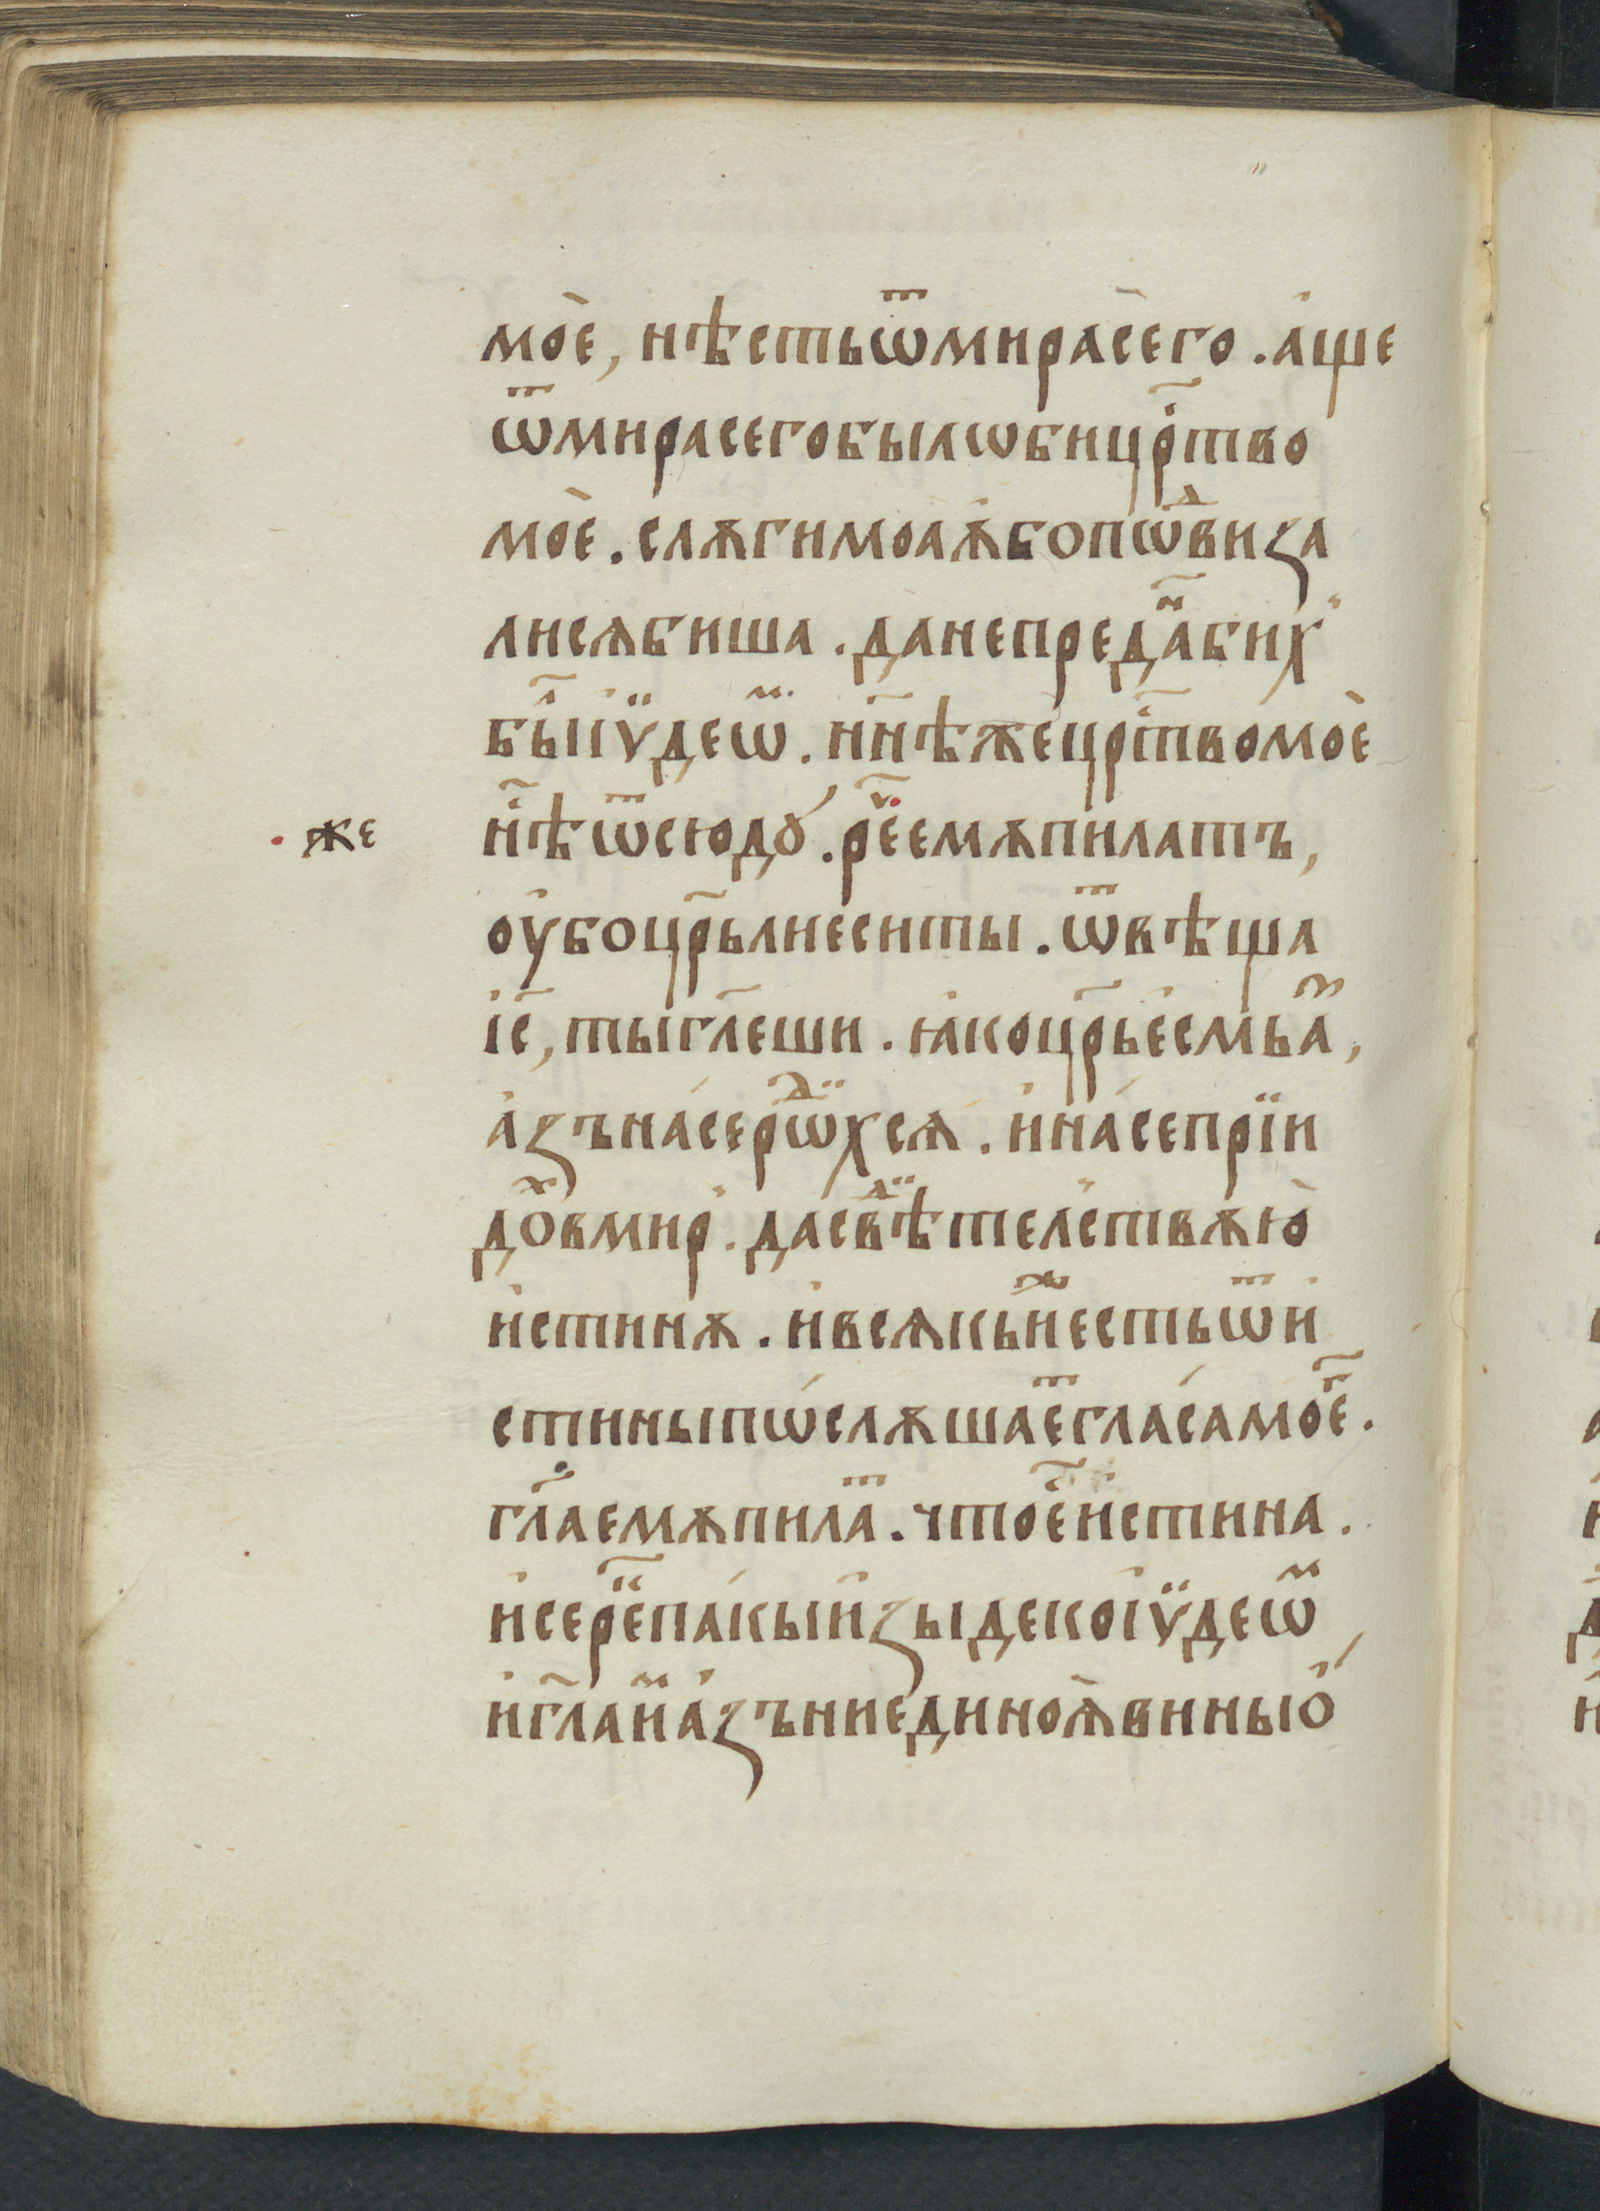 мо̀е, нѣсть ѿ мира сѐго . а҆ще
ѿ мира сего было̀ би црⷭ҇тво
мо̀е . слꙋги моаѧ҆ бо пѡⷣвиꙁа
лисѧ биша . да не преⷣаⷩ҇ бих̾
бы́ⷧ҇ і҆ꙋдеѡⷨ . нн҃ѣ же црⷭ҇тво мо̀е
нⷭ҇ѣ ѿсюдꙋ́ . реⷱ҇ емꙋ пилатъ,
• же
оу҆бо цр҃ь ли еси ты . ѿвѣща
і҆с҃, ты гл҃еши . ꙗ҆ко цр҃ь е҆смь аⷥ,
а҆ꙁъ на́ се роⷣи́хсѧ . и҆ на́ се прїи
доⷯ в мир̾ . да свⷣѣтел̾ствꙋю̀
и҆стинꙋ . и҆ всѧкы иⷤ есть ѿ и҆
стины пѡ́слꙋшаеⷮ гла́са моеⷢ҇ .
гл҃а емꙋ пилаⷮ . что е҆ⷭ҇ и҆стина .
и҆ се реⷱ҇ па́кы и҆ꙁыде ко і҆ꙋдеѡⷨ
и҆ гл҃а иⷨ а҆ꙁъ ни единоѧ̀ вины ѡ҆́